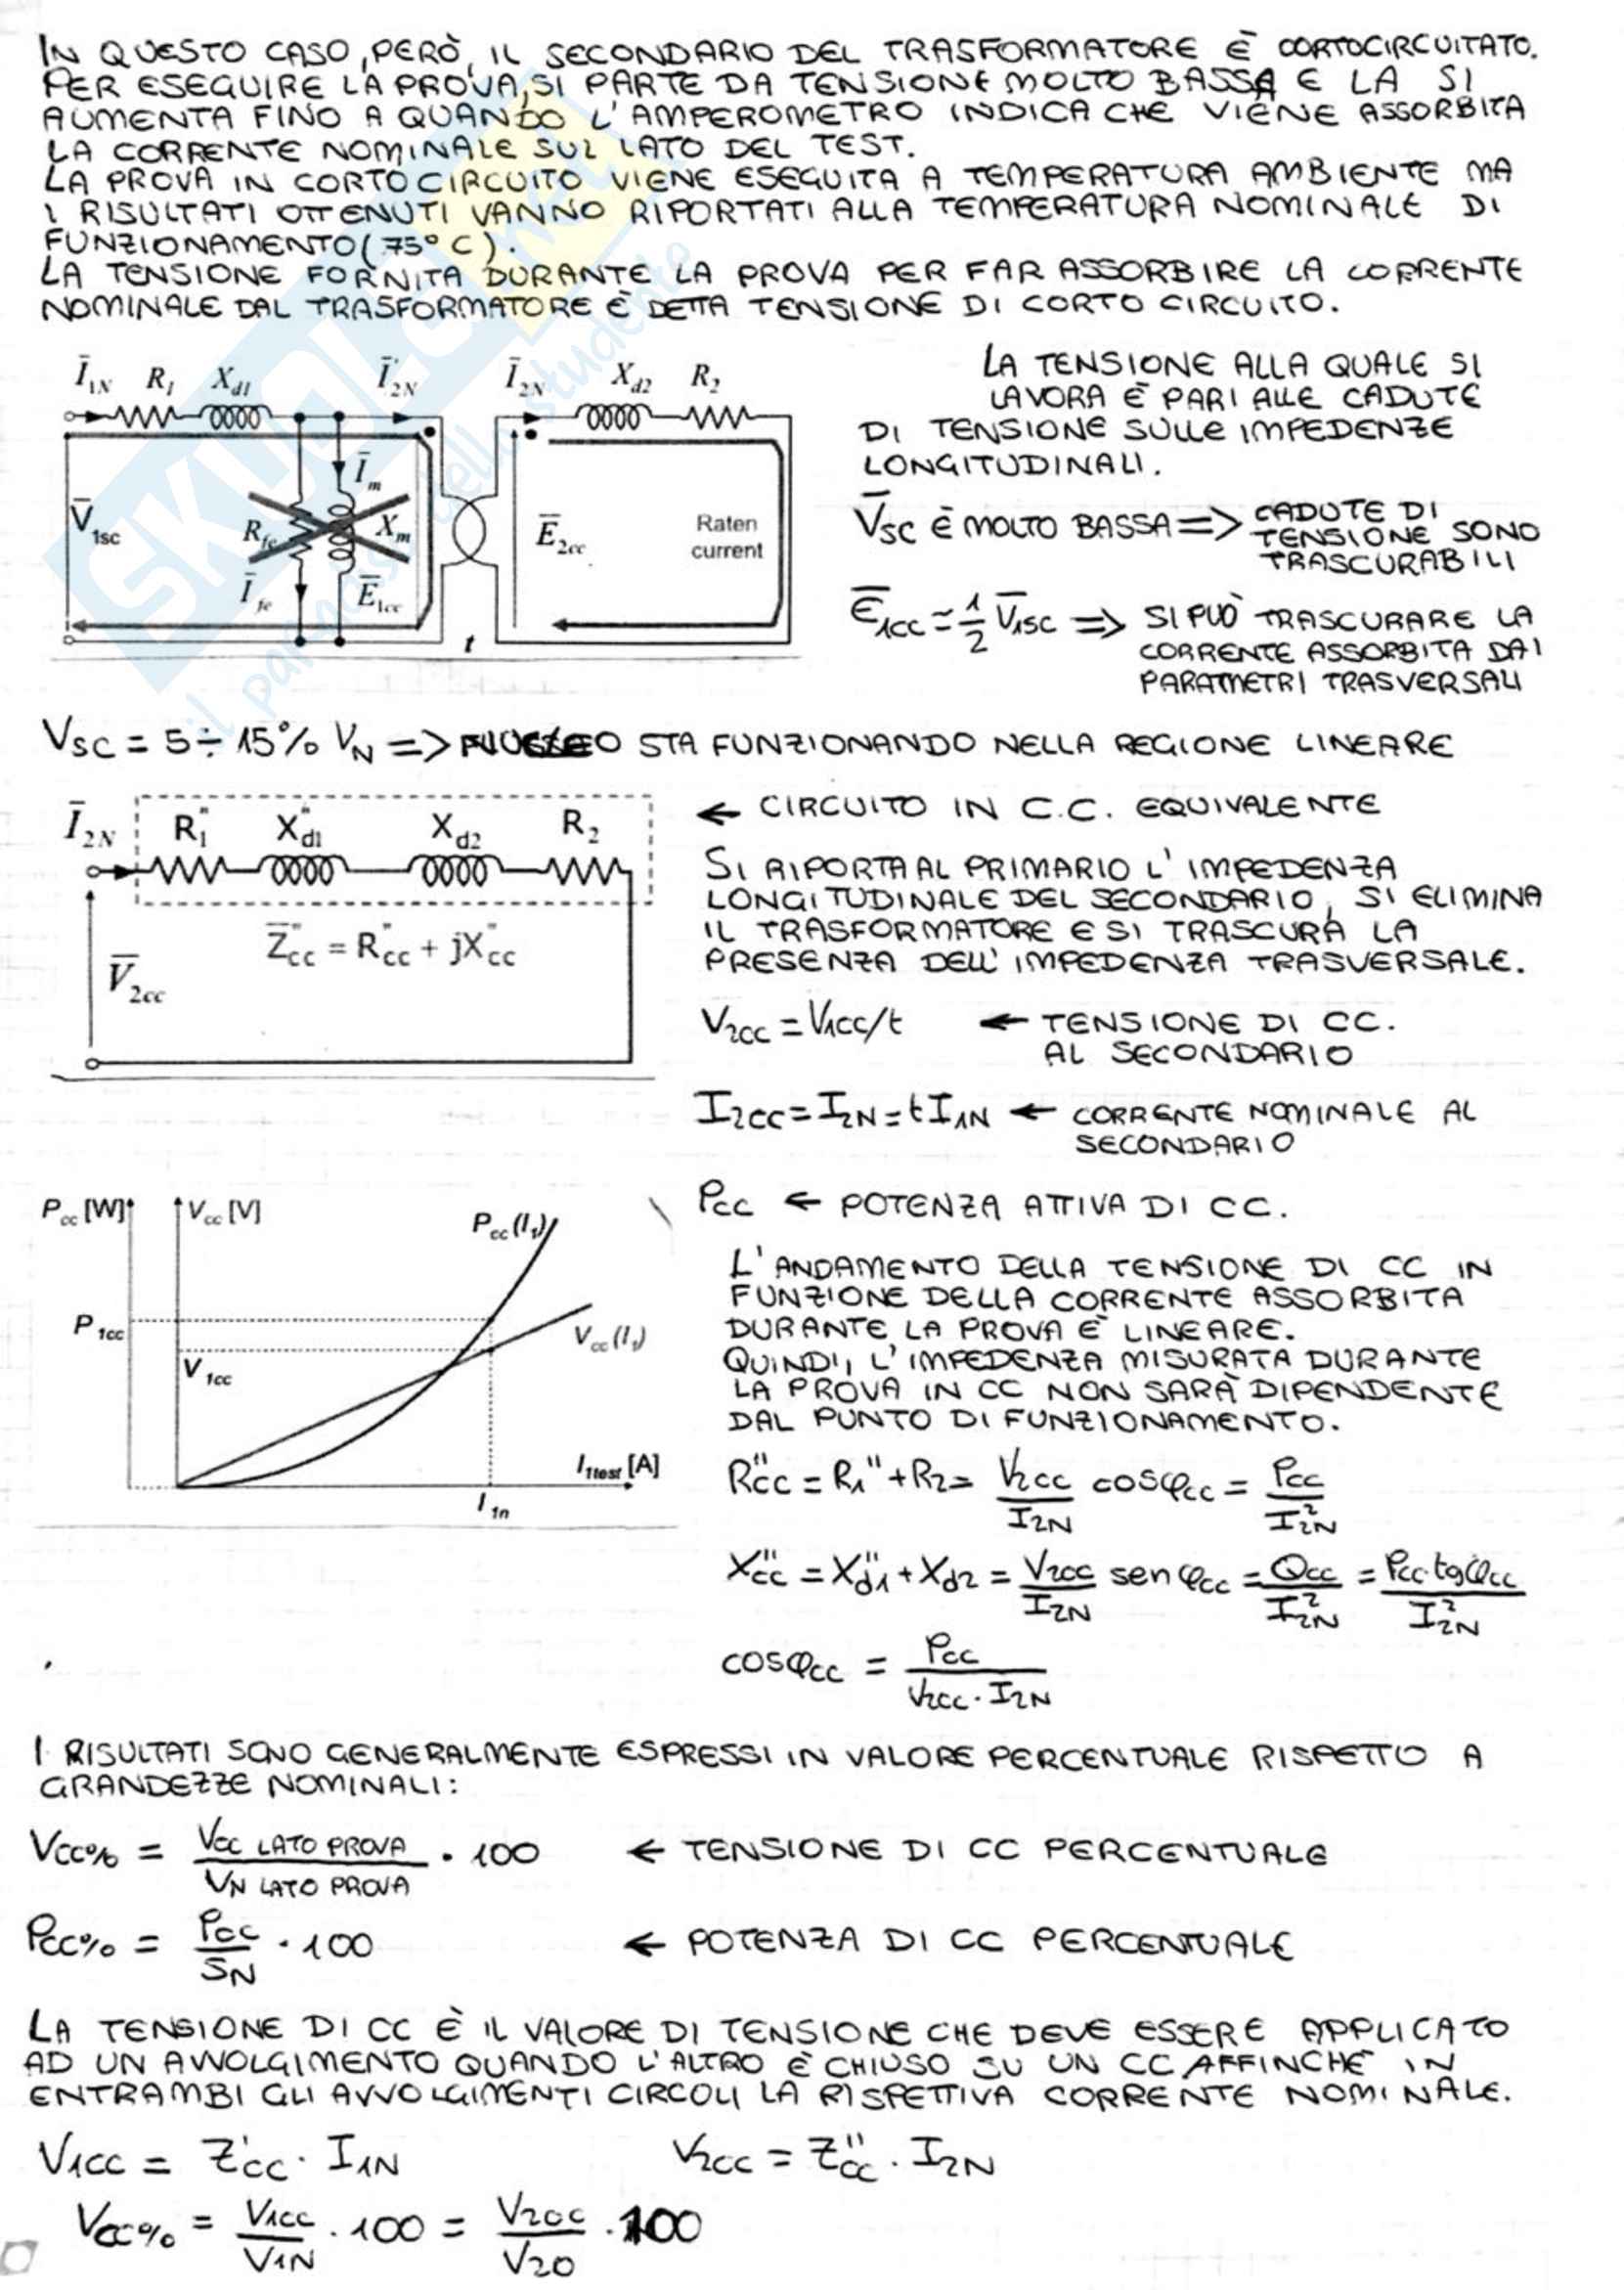 IN QUESTO CASO, PERÒ, IL SECONDARIO DEL TRASFORMATORE È CORTOCIRCUITATO.
PER ESEGUIRE LA PROVA, SI PARTE DA TENSIONE MOLTO BASSA E LA SI
AUMENTA FINO A QUANDO L'AMPEROMETRO INDICA CHE VIENE ASSORBITA
LA CORRENTE NOMINALE SUL LATO DEL TEST.
LA PROVA IN CORTO CIRCUITO VIENE ESEGUITA A TEMPERATURA AMBIENTE MA
I RISULTATI OTTENUTI VANNO RIPORTATI ALLA TEMPERATURA NOMINALE DI
FUNZIONAMENTO (75°C).
LA TENSIONE FORNITA DURANTE LA PROVA PER FAR ASSORBIRE LA CORRENTE
NOMINALE DAL TRASFORMATORE È DETTA TENSIONE DI CORTO CIRCUITO.
Ī1N R1 Xd1 Ī'2N Ī2N Xd2 R2
V̄1sc Rfe Īm Xm Īfe Ē1cc t Ē2cc
Raten
current
LA TENSIONE ALLA QUALE SI
LAVORA È PARI ALLE CADUTE
DI TENSIONE SULLE IMPEDENZE
LONGITUDINALI.
V̄SC È MOLTO BASSA => CADUTE DI
TENSIONE SONO
TRASCURABILI
Ē1CC ≃ 1/2 V̄1SC => SI PUÒ TRASCURARE LA
CORRENTE ASSORBITA DAI
PARAMETRI TRASVERSALI
VSC = 5 ÷ 15% VN => NUCLEO STA FUNZIONANDO NELLA REGIONE LINEARE
Ī2N R1" Xd1" Xd2 R2
Z̄cc" = Rcc" + jXcc"
V̄2cc
← CIRCUITO IN C.C. EQUIVALENTE
SI RIPORTA AL PRIMARIO L'IMPEDENZA
LONGITUDINALE DEL SECONDARIO, SI ELIMINA
IL TRASFORMATORE E SI TRASCURA LA
PRESENZA DELL'IMPEDENZA TRASVERSALE.
V2CC = V1CC/t ← TENSIONE DI CC.
AL SECONDARIO
I2CC = I2N = t I1N ← CORRENTE NOMINALE AL
SECONDARIO
Pcc [W] Vcc [V] Pcc (I1)
P1cc
V1cc Vcc (I1)
I1test [A]
I1n
PCC ← POTENZA ATTIVA DI CC.
L'ANDAMENTO DELLA TENSIONE DI CC IN
FUNZIONE DELLA CORRENTE ASSORBITA
DURANTE LA PROVA È LINEARE.
QUINDI, L'IMPEDENZA MISURATA DURANTE
LA PROVA IN CC NON SARÀ DIPENDENTE
DAL PUNTO DI FUNZIONAMENTO.
RCC" = R1" + R2 = V2CC/I2N cosφCC = PCC/I2N²
XCC" = Xd1" + Xd2 = V2CC/I2N senφCC = QCC/I2N² = PCC·tgφCC/I2N²
cosφCC = PCC/V2CC·I2N
I RISULTATI SONO GENERALMENTE ESPRESSI IN VALORE PERCENTUALE RISPETTO A
GRANDEZZE NOMINALI:
VCC% = VCC LATO PROVA/VN LATO PROVA · 100 ← TENSIONE DI CC PERCENTUALE
PCC% = PCC/SN · 100 ← POTENZA DI CC PERCENTUALE
LA TENSIONE DI CC È IL VALORE DI TENSIONE CHE DEVE ESSERE APPLICATO
AD UN AVVOLGIMENTO QUANDO L'ALTRO È CHIUSO SU UN CC AFFINCHÈ IN
ENTRAMBI GLI AVVOLGIMENTI CIRCOLI LA RISPETTIVA CORRENTE NOMINALE.
V1CC = Z'CC · I1N V2CC = Z"CC · I2N
VCC% = V1CC/V1N · 100 = V2CC/V20 · 100
SKUOLA.net